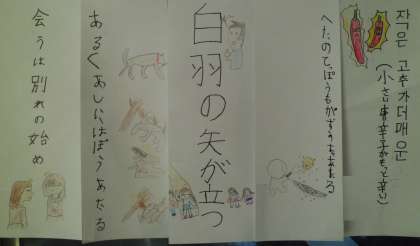 작은 고추가더매운
(小さい唐辛子がもっと辛い)
へたのてっぽうもかずうちゃあたる
白羽の矢が立つ
あるくあしにはぼうあたる
会うは別れの始め